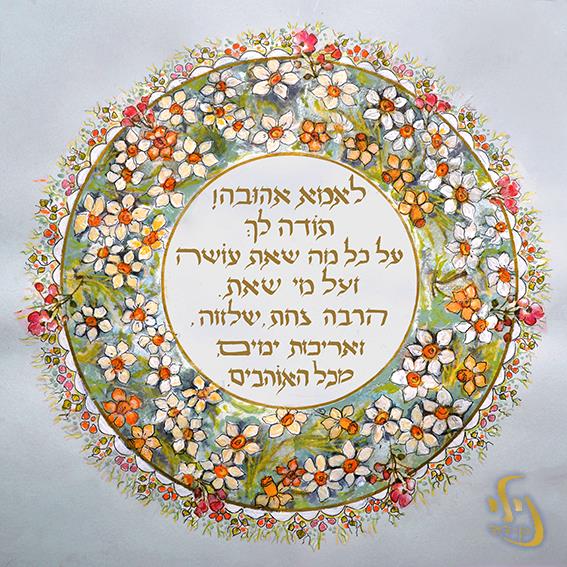 לאמא אהובה!
תודה לך
על כל מה שאת עושה
ועל מי שאת.
הרבה נחת, שלווה,
ואריכות ימים,
מכל האוהבים.